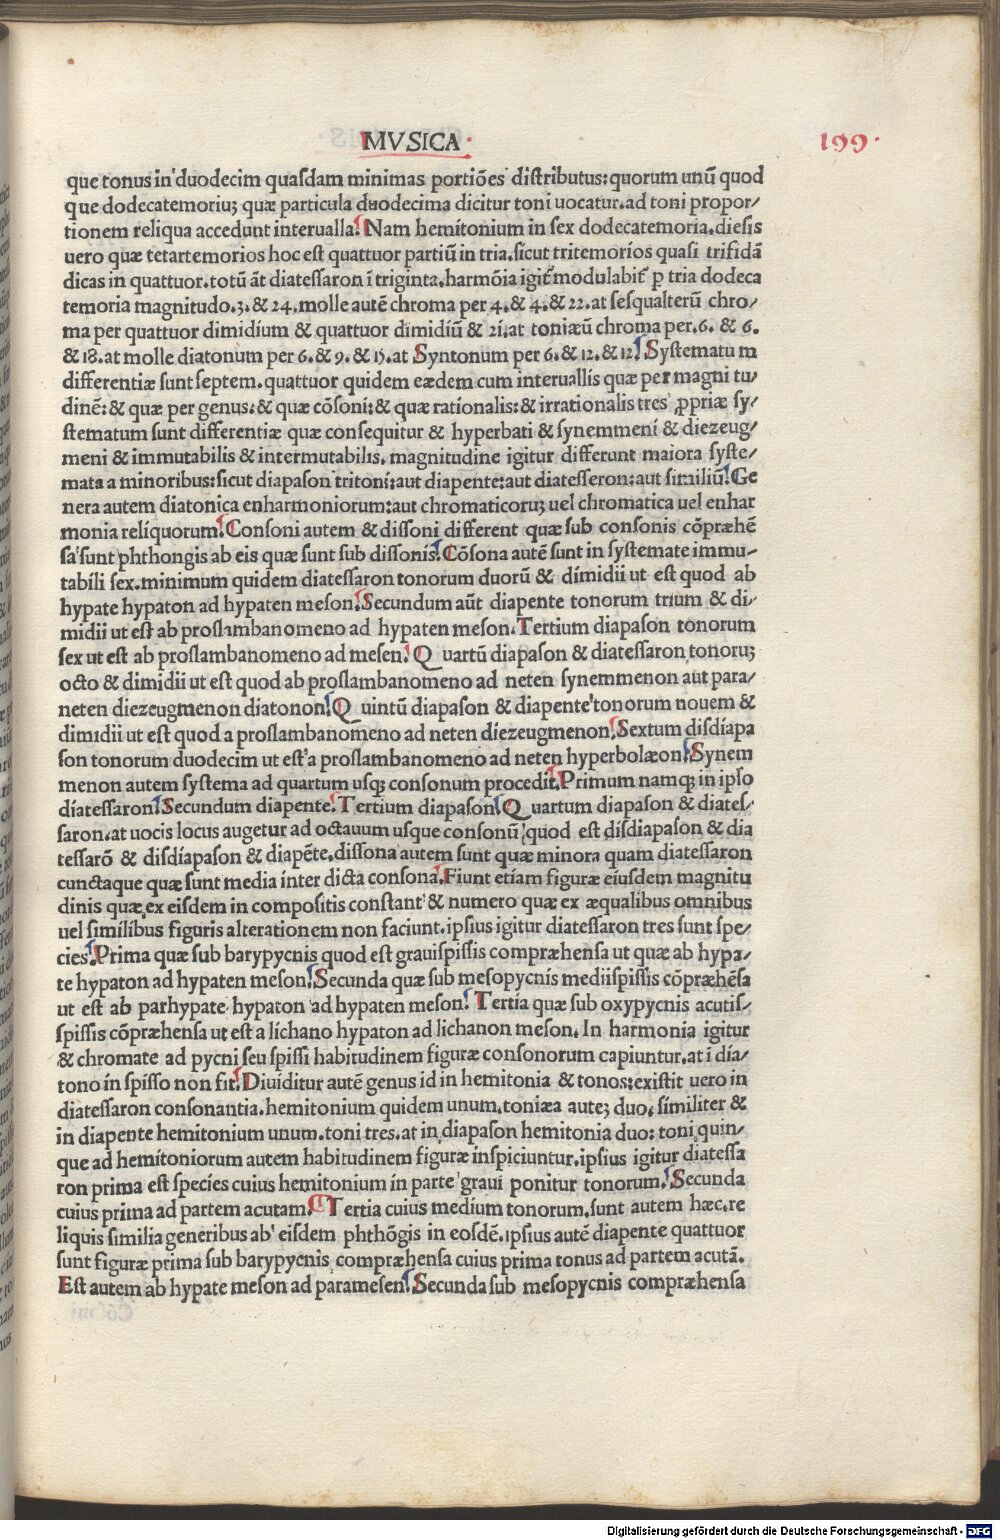 MVSICA
199
que tonus in duodecim quasdam minimas portiões distributus: quorum unũ quod
que dodecatemoriuʒ quæ particula duodecima dicitur toni uocatur. ad toni propor/
tionem reliqua accedunt interualla. Nam hemitonium in sex dodecatemoria. diesis
uero quæ tetartemorios hoc est quattuor partiũ in tria. sicut tritemorios quasi trifidã
dicas in quattuor. totũ ãt diatessaron ĩ triginta. harmõia igit᷑ modulabit᷑ p tria dodeca
temoria magnitudo. 3. & 24. molle autẽ chroma per 4. & 4. & 22. at sesqualterũ chro/
ma per quattuor dimidium & quattuor dimidiũ & 21. at toniæũ chroma per. 6. & 6.
& 18. at molle diatonum per 6. & 9. & 15. at Syntonum per 6. & 12. & 12. Systematu m
differentiæ sunt septem. quattuor quidem eædem cum interuallis quæ per magni tu/
dinẽ: & quæ per genus: & quæ cõsoni: & quæ rationalis: & irrationalis tres ꝓpriæ sy/
stematum sunt differentiæ quæ consequitur & hyperbati & synemmeni & diezeug/
meni & immutabilis & intermutabilis. magnitudine igitur differunt maiora syste/
mata a minoribus: sicut diapason tritoni: aut diapente: aut diatesseron: aut similiũ. Ge
nera autem diatonica enharmoniorum: aut chromaticoruʒ uel chromatica uel enhar
monia reliquorum. Consoni autem & dissoni different quæ sub consonis cõpræhẽ
sa sunt phthongis ab eis quæ sunt sub dissonis. Cõsona autẽ sunt in systemate immu/
tabili sex. minimum quidem diatessaron tonorum duorũ & dimidii ut est quod ab
hypate hypaton ad hypaten meson. Secundum aũt diapente tonorum trium & di/
midii ut est ab proslambanomeno ad hypaten meson. Tertium diapason tonorum
sex ut est ab proslambanomeno ad mesen. Q uartũ diapason & diatessaron tonoruʒ
octo & dimidii ut est quod ab proslambanomeno ad neten synemmenon aut para/
neten diezeugmenon diatonon. Q uintũ diapason & diapente tonorum nouem &
dimidii ut est quod a proslambanomeno ad neten diezeugmenon. Sextum disdiapa
son tonorum duodecim ut est a proslambanomeno ad neten hyperbolæon. Synem
menon autem systema ad quartum usqꝫ consonum procedit. Primum namqꝫ in ipso
diatessaron. Secundum diapente. Tertium diapason. Q uartum diapason & diates/
saron. at uocis locus augetur ad octauum usque consonũ quod est disdiapason & dia
tessarõ & disdiapason & diapẽte. dissona autem sunt quæ minora quam diatessaron
cunctaque quæ sunt media inter dicta consona. Fiunt etiam figuræ eiusdem magnitu
dinis quæ ex eisdem in compositis constant & numero quæ ex æqualibus omnibus
uel similibus figuris alterationem non faciunt. ipsius igitur diatessaron tres sunt spe/
cies. Prima quæ sub barypycnis quod est grauispissis compræhensa ut quæ ab hypa/
te hypaton ad hypaten meson. Secunda quæ sub mesopycnis mediispissis cõpræhẽsa
ut est ab parhypate hypaton ad hypaten meson. Tertia quæ sub oxypycnis acutis/
spissis cõpræhensa ut est a lichano hypaton ad lichanon meson. In harmonia igitur
& chromate ad pycni seu spissi habitudinem figuræ consonorum capiuntur. at ĩ dia/
tono in spisso non fit. Diuiditur autẽ genus id in hemitonia & tonos: existit uero in
diatessaron consonantia. hemitonium quidem unum. toniæa auteʒ duo. similiter &
in diapente hemitonium unum. toni tres. at in diapason hemitonia duo: toni quin/
que ad hemitoniorum autem habitudinem figuræ inspiciuntur. ipsius igitur diatessa
ron prima est species cuius hemitonium in parte graui ponitur tonorum. Secunda
cuius prima ad partem acutam. Tertia cuius medium tonorum. sunt autem hæc. re
liquis similia generibus ab eisdem phthõgis in eosdẽ. ipsius autẽ diapente quattuor
sunt figuræ prima sub barypycnis compræhensa cuius prima tonus ad partem acutã.
Est autem ab hypate meson ad paramesen. Secunda sub mesopycnis compræhensa
Digitalisierung gefördert durch die Deutsche Forschungsgemeinschaft - DFG